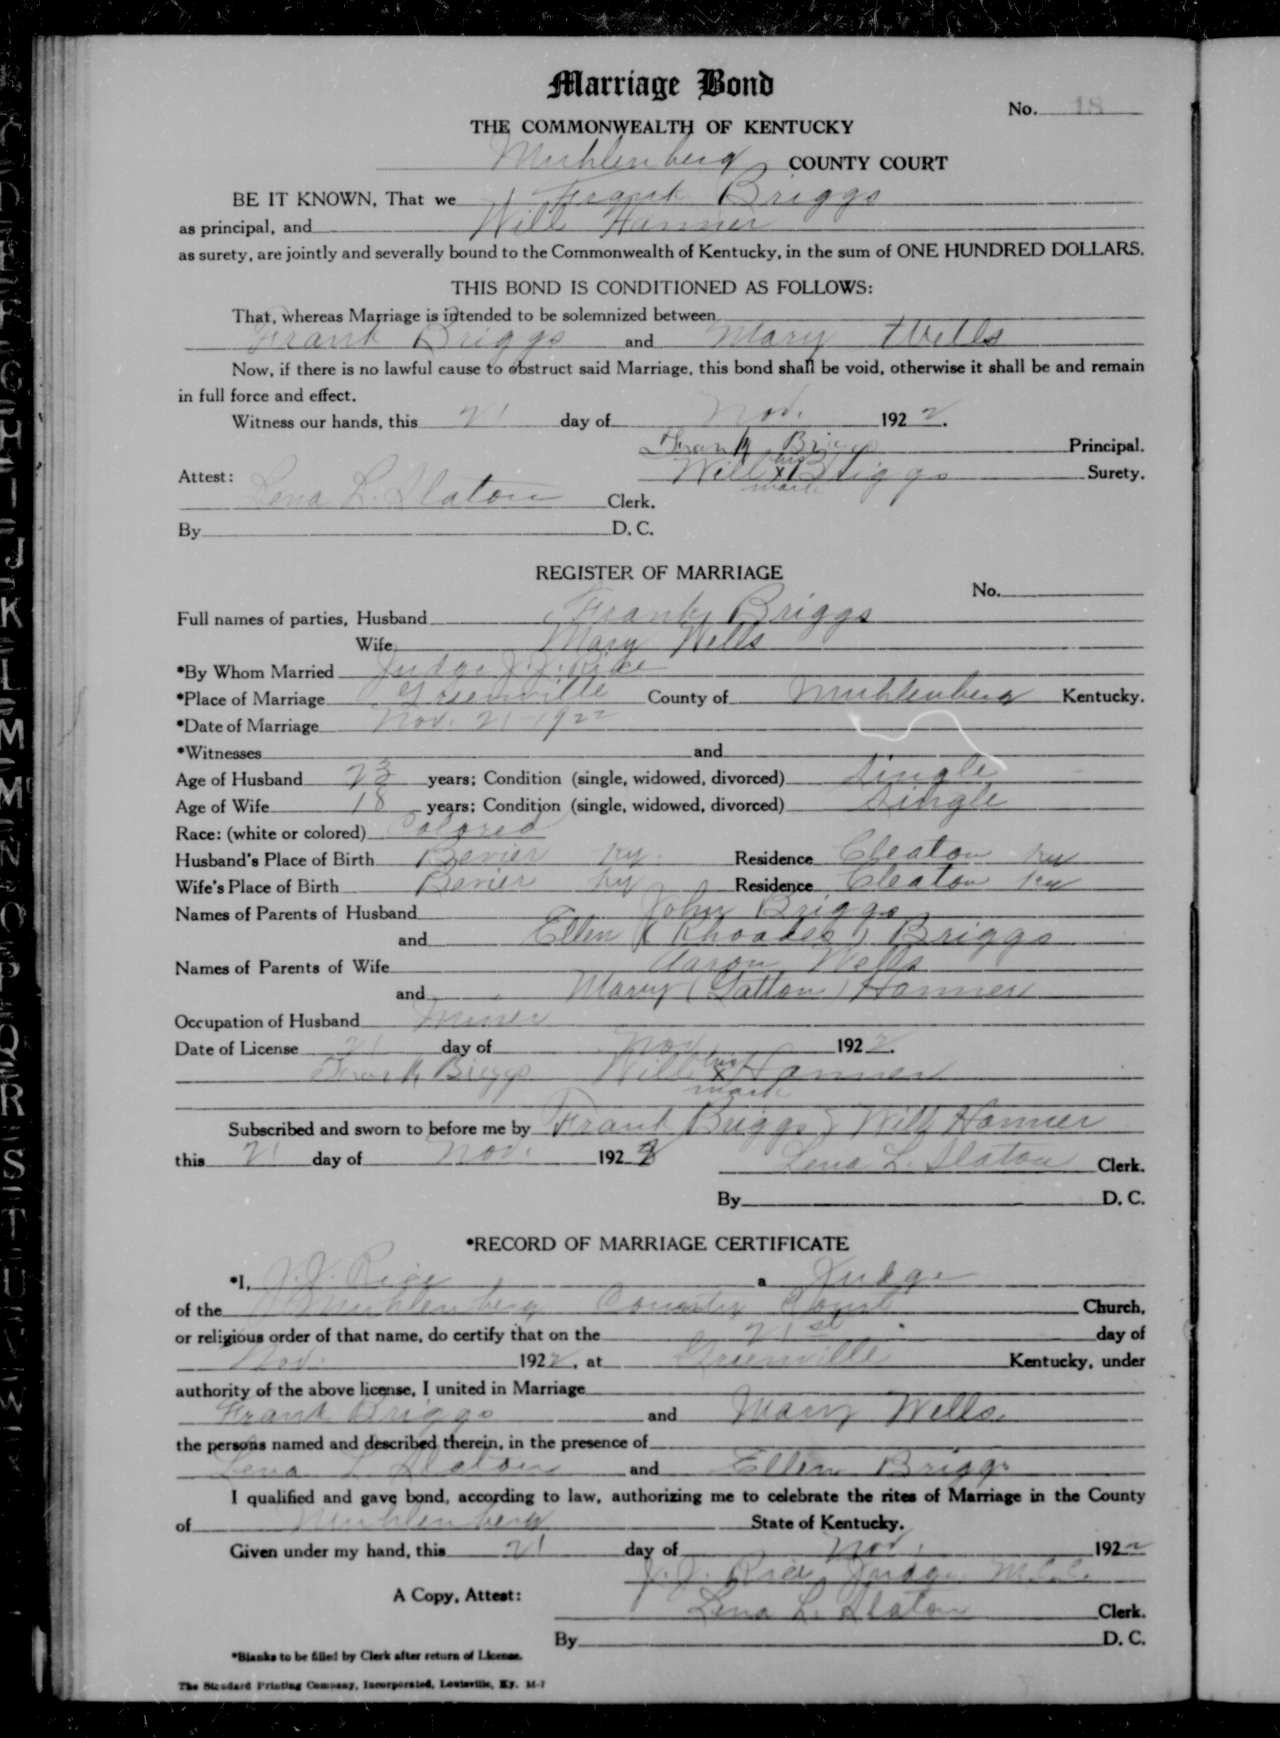 Marriage Bond
No. 18
THE COMMONWEALTH OF KENTUCKY
Muhlenberg COUNTY COURT
BE IT KNOWN, That we Frank Briggs
as principal, and Will Hanner
as surety, are jointly and severally bound to the Commonwealth of Kentucky, in the sum of ONE HUNDRED DOLLARS.
THIS BOND IS CONDITIONED AS FOLLOWS:
That, whereas Marriage is intended to be solemnized between
Frank Briggs and Mary Wells
Now, if there is no lawful cause to obstruct said Marriage, this bond shall be void, otherwise it shall be and remain
in full force and effect.
Witness our hands, this 21 day of Nov. 1922.
Frank Briggs Principal.
his
Attest: Will x Briggs Surety.
mark
Lena L. Slaton Clerk.
By D. C.
REGISTER OF MARRIAGE
No.
Full names of parties, Husband Frank Briggs
Wife Mary Wells
*By Whom Married Judge J. J. Rice
*Place of Marriage Greenville County of Muhlenberg Kentucky.
*Date of Marriage Nov. 21-1922
*Witnesses and
Age of Husband 23 years; Condition (single, widowed, divorced) Single
Age of Wife 18 years; Condition (single, widowed, divorced) Single
Race: (white or colored) Colored
Husband's Place of Birth Bevier Ky. Residence Cleaton Ky
Wife's Place of Birth Bevier Ky Residence Cleaton Ky
Names of Parents of Husband John Briggs
and Ellen (Rhoades) Briggs
Names of Parents of Wife Aaron Wells
and Mary (Gatton) Hanner
Occupation of Husband Miner
Date of License 21 day of Nov. 1922.
his
Frank Briggs Will x Hanner
mark
Subscribed and sworn to before me by Frank Briggs & Will Hanner
this 21 day of Nov. 1922 Lena L. Slaton Clerk.
By D. C.
*RECORD OF MARRIAGE CERTIFICATE
*I, J. J. Rice, a Judge
of the Muhlenberg County Court Church,
or religious order of that name, do certify that on the 21st day of
Nov. 1922, at Greenville Kentucky, under
authority of the above license, I united in Marriage
Frank Briggs and Mary Wells.
the persons named and described therein, in the presence of
Lena L. Slaton and Ellen Briggs
I qualified and gave bond, according to law, authorizing me to celebrate the rites of Marriage in the County
of Muhlenberg State of Kentucky.
Given under my hand, this 21 day of Nov. 1922
J. J. Rice, Judge M.C.C.
A Copy, Attest: Lena L. Slaton Clerk.
By D. C.
*Blanks to be filled by Clerk after return of License.
The Standard Printing Company, Incorporated, Louisville, Ky. M-7